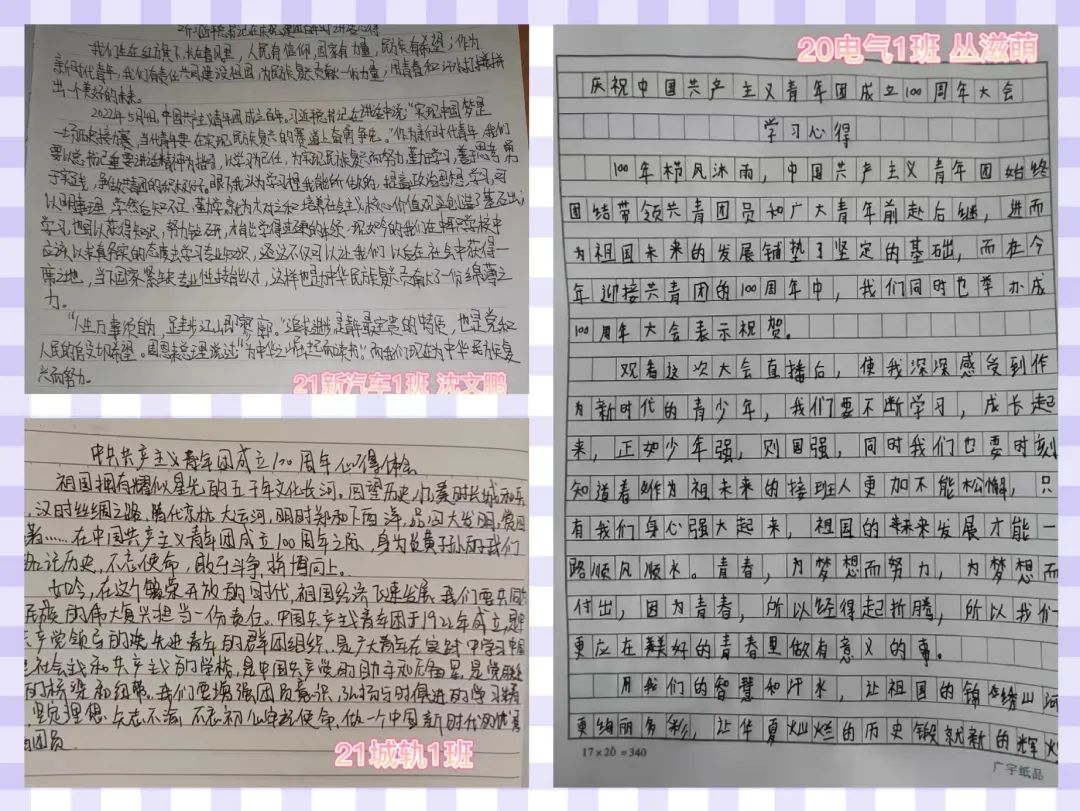 听习近平总书记在庆祝建团百年时讲话心得
我们生在红旗下,长在春风里,人民有信仰,国家有力量,民族有希望;作为
新时代青年,我们有责任共同建设祖国,为民族复兴贡献一份力量,用青春和汗水打拼
出一个美好的未来。
2022年5月10日,中国共产主义青年团成立百年。习近平总书记在讲话中说:"实现中国梦是
一场历史接力赛,当代青年要在实现民族复兴的赛道上奋勇争先。"作为新时代青年,我们
要以总书记重要讲话精神为指引,以学习为己任,为实现民族复兴而努力,勤力学习,善于思考,勇
于实践,
学习,也可以获得知识,努力钻研,才能
应该以求真务实的态度去学习专业知识,
席之地,当下国家紧缺专业性技能人才,这样也是为中华民族复兴贡献了一份绵薄之
力。
"人生万事须自为,跬步江山即寥廓。"追求进步是青年最宝贵的特质,也是党和
人民的殷切希望。周恩来总理说过"为中华之崛起而读书",而我们现在为中华民族复
兴而努力。
21新汽车1班 沈文鹏
中共共产主义青年团成立100周年心得体会
祖国拥有耀似星光的五千年文化长河。回望历史,
汉时丝绸之路,隋代京杭大运河,明时郑和下西洋,品四大发明,赏四
著……在中国共产主义青年团成立100周年之际,身为炎黄子孙的我们
勿忘历史,不忘使命,敢于斗争,积博向上。
如今,在这个繁荣开放的时代,祖国经济飞速发展,我们要共同
民族的伟大复兴担当一份责任。中国共产主义青年团于1922年成立,是中
产党领导的先进青年的群团组织,是广大青年在实践中学习中国
色社会主义和共产主义的学校,是中国共产党的助手和后备军,是党联系
的桥梁和纽带。我们要增强团员意识,弘扬与时俱进的学习精
,坚定理想,矢志不渝,不忘初心牢记使命,做一个中国新时代的优秀
团员
21城轨1班
20电气1班 丛滋萌
庆祝中国共产主义青年团成立100周年大会
学习心得
100年栉风沐雨,中国共产主义青年团始终
团结带领共青团员和广大青年前赴后继,进而
为祖国未来的发展铺垫了坚定的基础,而在今
年迎接共青团的100周年中,我们同时也举办成
100周年大会表示祝贺。
观看这次大会直播后,使我深深感受到作
为新时代的青少年,我们要不断学习,成长起
来,正如少年强,则国强,同时我们也要时刻
知道着作为祖未来的接班人更加不能松懈,只
有我们身心强大起来,祖国的未来发展才能一
路顺风顺水。青春,为梦想而努力,为梦想而
付出,因为青春,所以经得起折腾,所以我们
更应在美好的青春里做有意义的事。
用我们的智慧和汗水,让祖国的锦绣山河
更绚丽多彩,让华夏灿烂的历史锻就新的辉煌
17×20=340
广宇纸品